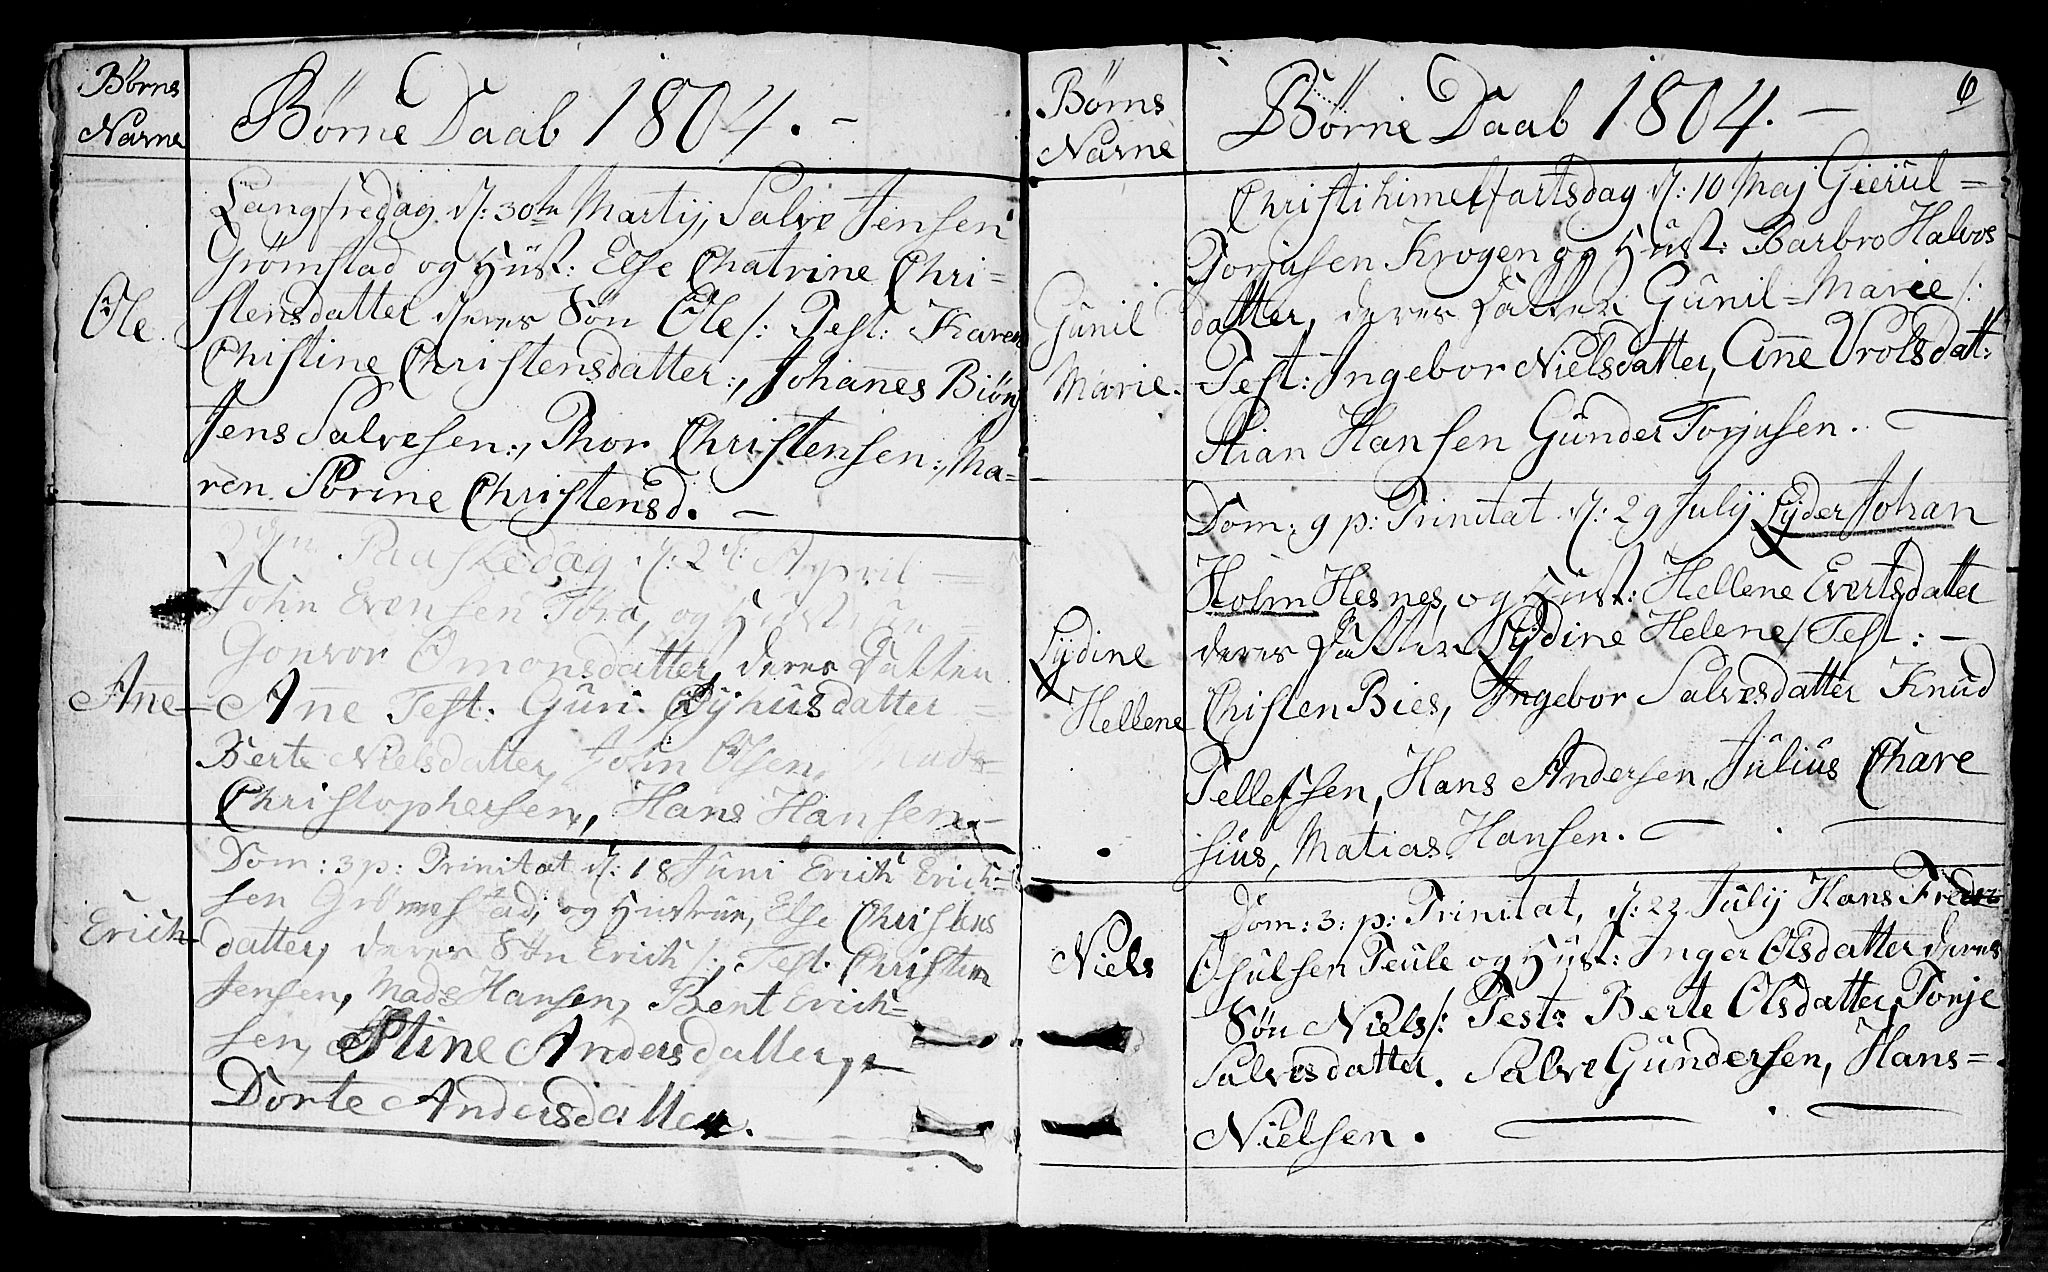 Børns
Navne
Børne Daab 1804. -
Langfredag d: 30te Martij, Salve Jensen
Grømstad og Hüst: Else Chatrine Chri=
stensdatter deres Søn Ole /: Test: Karen
Ole.
Chistine Christensdatter:, Johanes Biön
Jens Salvesen:, Thor Christensen:, Ma=
ren Sorine Christensd. -
2den Paaskedag d: 2de April =
John Evensen Tora, og Hüst
Gonvor Omonsdatter, deres Datter
Ane = Ane Test: Guri Ojhusdatter =
Berte Nielsdatter, John Olsen,
Christophersen, Hans Hansen. -
Dom: 3 p: Trinitat d: 18 Juni Erich Erich=
sen Grømstad, og Hustrue, Else Christens
Erich datter, deres Søn Erich /: Test. Christen
Jensen, Mads Hansen, Bent Erich=
sen, Stine Andersdatter, -
Dorte Andersdatter.
Børns
Navne
Børne Daab 1804. -
6
Christihimelfartsdag d: 10 Maj Gierul=
Torjusen Krogen og Hüst: Barbro Halvos
Gunil datter, deres Datter Gunil=Marie /:
Marie. Test: Ingebor Nielsdatter, Ane Vrolsdatt:
Stian Hansen Gunder Torjusen.
Dom: 9 p: Trinitat d: 29 Julij Lyder Johan
Holm Hesnes, og Hüst: Hellene Evertsdatter
Lydine deres Datter Lydine Helene / Test: -
Hellene Chisten Bies, Ingebor Salvesdatter Knud
Tellefsen, Hans Andersen, Julius Chare
sius, Matias Hansen.
Dom: 3: p: Trinitat, d: 22 Julij Hans Fredr
Niels Osulsen Teule og Hüst: Inger Olsdatter deres
Søn Niels /: Test: Berte Olsdatter, Tonje
Salvesdatter. Salve Gundersen, Hans=
Nielsen.